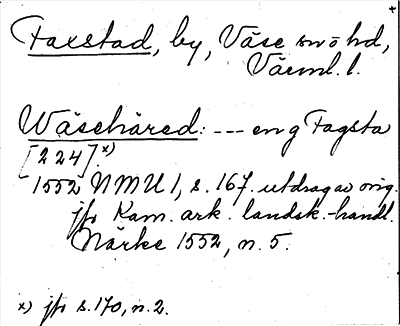 Taxstad, by, Väse sn o hd,
Värml. l.
Wäsehäred: --- en g Tagsta
[224].x)
1552 NMU 1, s. 167. utdrag av orig.
jfr Kam. ark. landsk.-handl.
Närke 1552, n. 5.
x) jfr s. 170, n. 2.